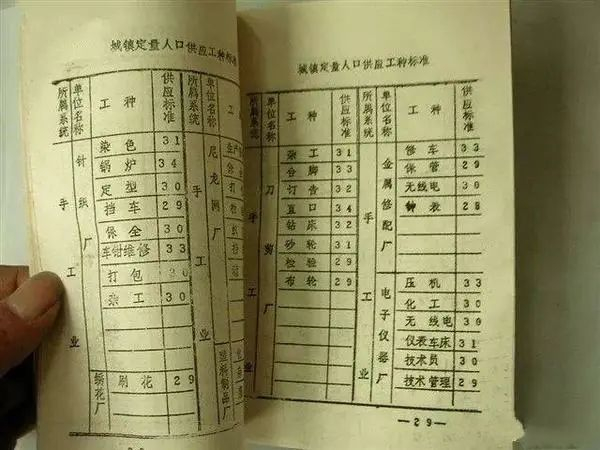 城镇定量人口供应工种标准
所属系统 单位名称 工种 供应标准 所属系统 单位名称 工
手工业 针织厂 染色 31 手工业 尼龙网厂
锅炉 34
定型 30
挡车 29
保全 30
车钳维修 33
打包 30
杂工 30
绣花厂 刷花 29 塑料制品厂
城镇定量人口供应工种标准
所属系统 单位名称 工种 供应标准 所属系统 单位名称 工种 供应标准
手工业 刀剪厂 杂工 31 手工业 金属修配厂 修车 33
合脚 33 保管 29
打告 32 无线电 30
直口 34 钟表 28
钻床 32
砂轮 31
检验 29
布轮 29 电子仪器厂 压机 33
化工 30
无线电 30
仪表车床 31
技术员 30
技术管理 29
—29—